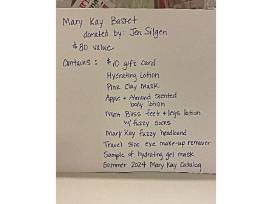 Mary Kay Basket
donated by: Jen Silgen
$80 value
Contains: $10 gift card
Hydrating Lotion
Pink Clay Mask
Apple + Almond scented
body lotion
Mint Bliss feet + legs lotion
w/ fuzzy socks
Mary Kay fuzzy headband
Travel size eye make-up remover
Sample of hydrating gel mask
Summer 2024 Mary Kay Catalog